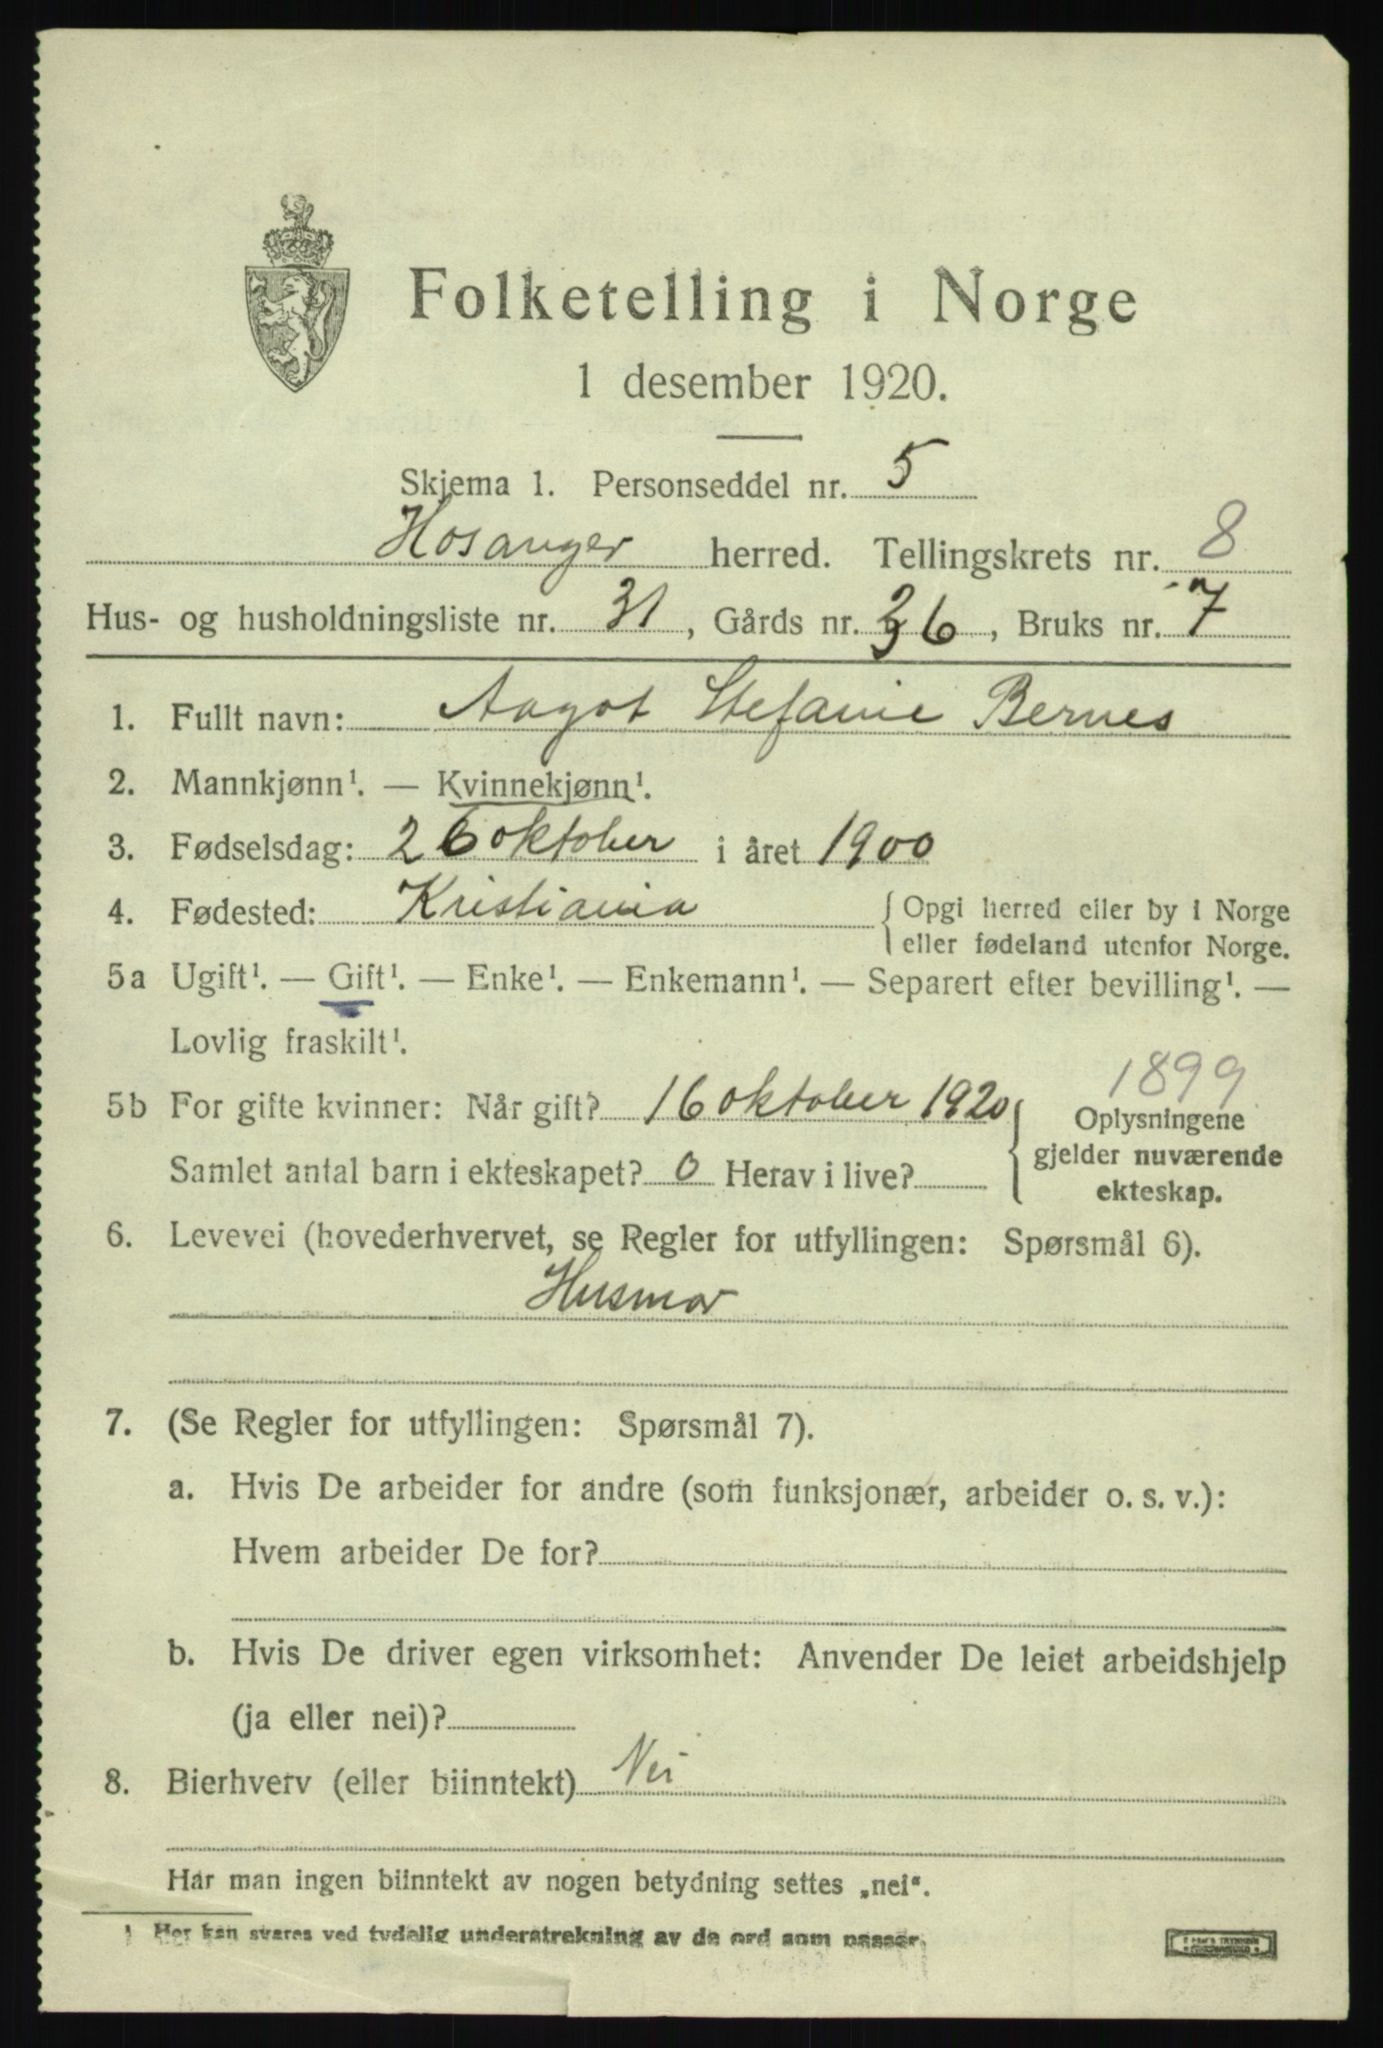 Folketelling i Norge
1 desember 1920.
Skjema 1. Personseddel nr. 5
Hosanger herred. Tellingskrets nr. 8
Hus- og husholdningsliste nr. 31, Gårds nr. 36, Bruks nr. 7
1. Fullt navn: Aagot Stefanie Bernes
2. Mannkjønn¹. — Kvinnekjønn¹.
3. Fødselsdag: 26 oktober i året 1900
4. Fødested: Kristiania { Opgi herred eller by i Norge
eller fødeland utenfor Norge.
5a Ugift¹. — Gift¹. — Enke¹. — Enkemann¹. — Separert efter bevilling¹. —
Lovlig fraskilt¹.
1899
5b For gifte kvinner: Når gift? 16 oktober 1920 { Oplysningene
gjelder nuværende
Samlet antal barn i ekteskapet? 0 Herav i live?
ekteskap.
6. Levevei (hovederhvervet, se Regler for utfyllingen: Spørsmål 6).
Husmor
7. (Se Regler for utfyllingen: Spørsmål 7).
a. Hvis De arbeider for andre (som funksjonær, arbeider o. s. v.):
Hvem arbeider De for?
b. Hvis De driver egen virksomhet: Anvender De leiet arbeidshjelp
(ja eller nei)?
8. Bierhverv (eller biinntekt) Nei
Har man ingen biinntekt av nogen betydning settes „nei“.
¹ Her kan svares ved tydelig understrekning av de ord som passer.